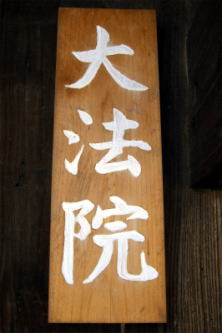 大法院